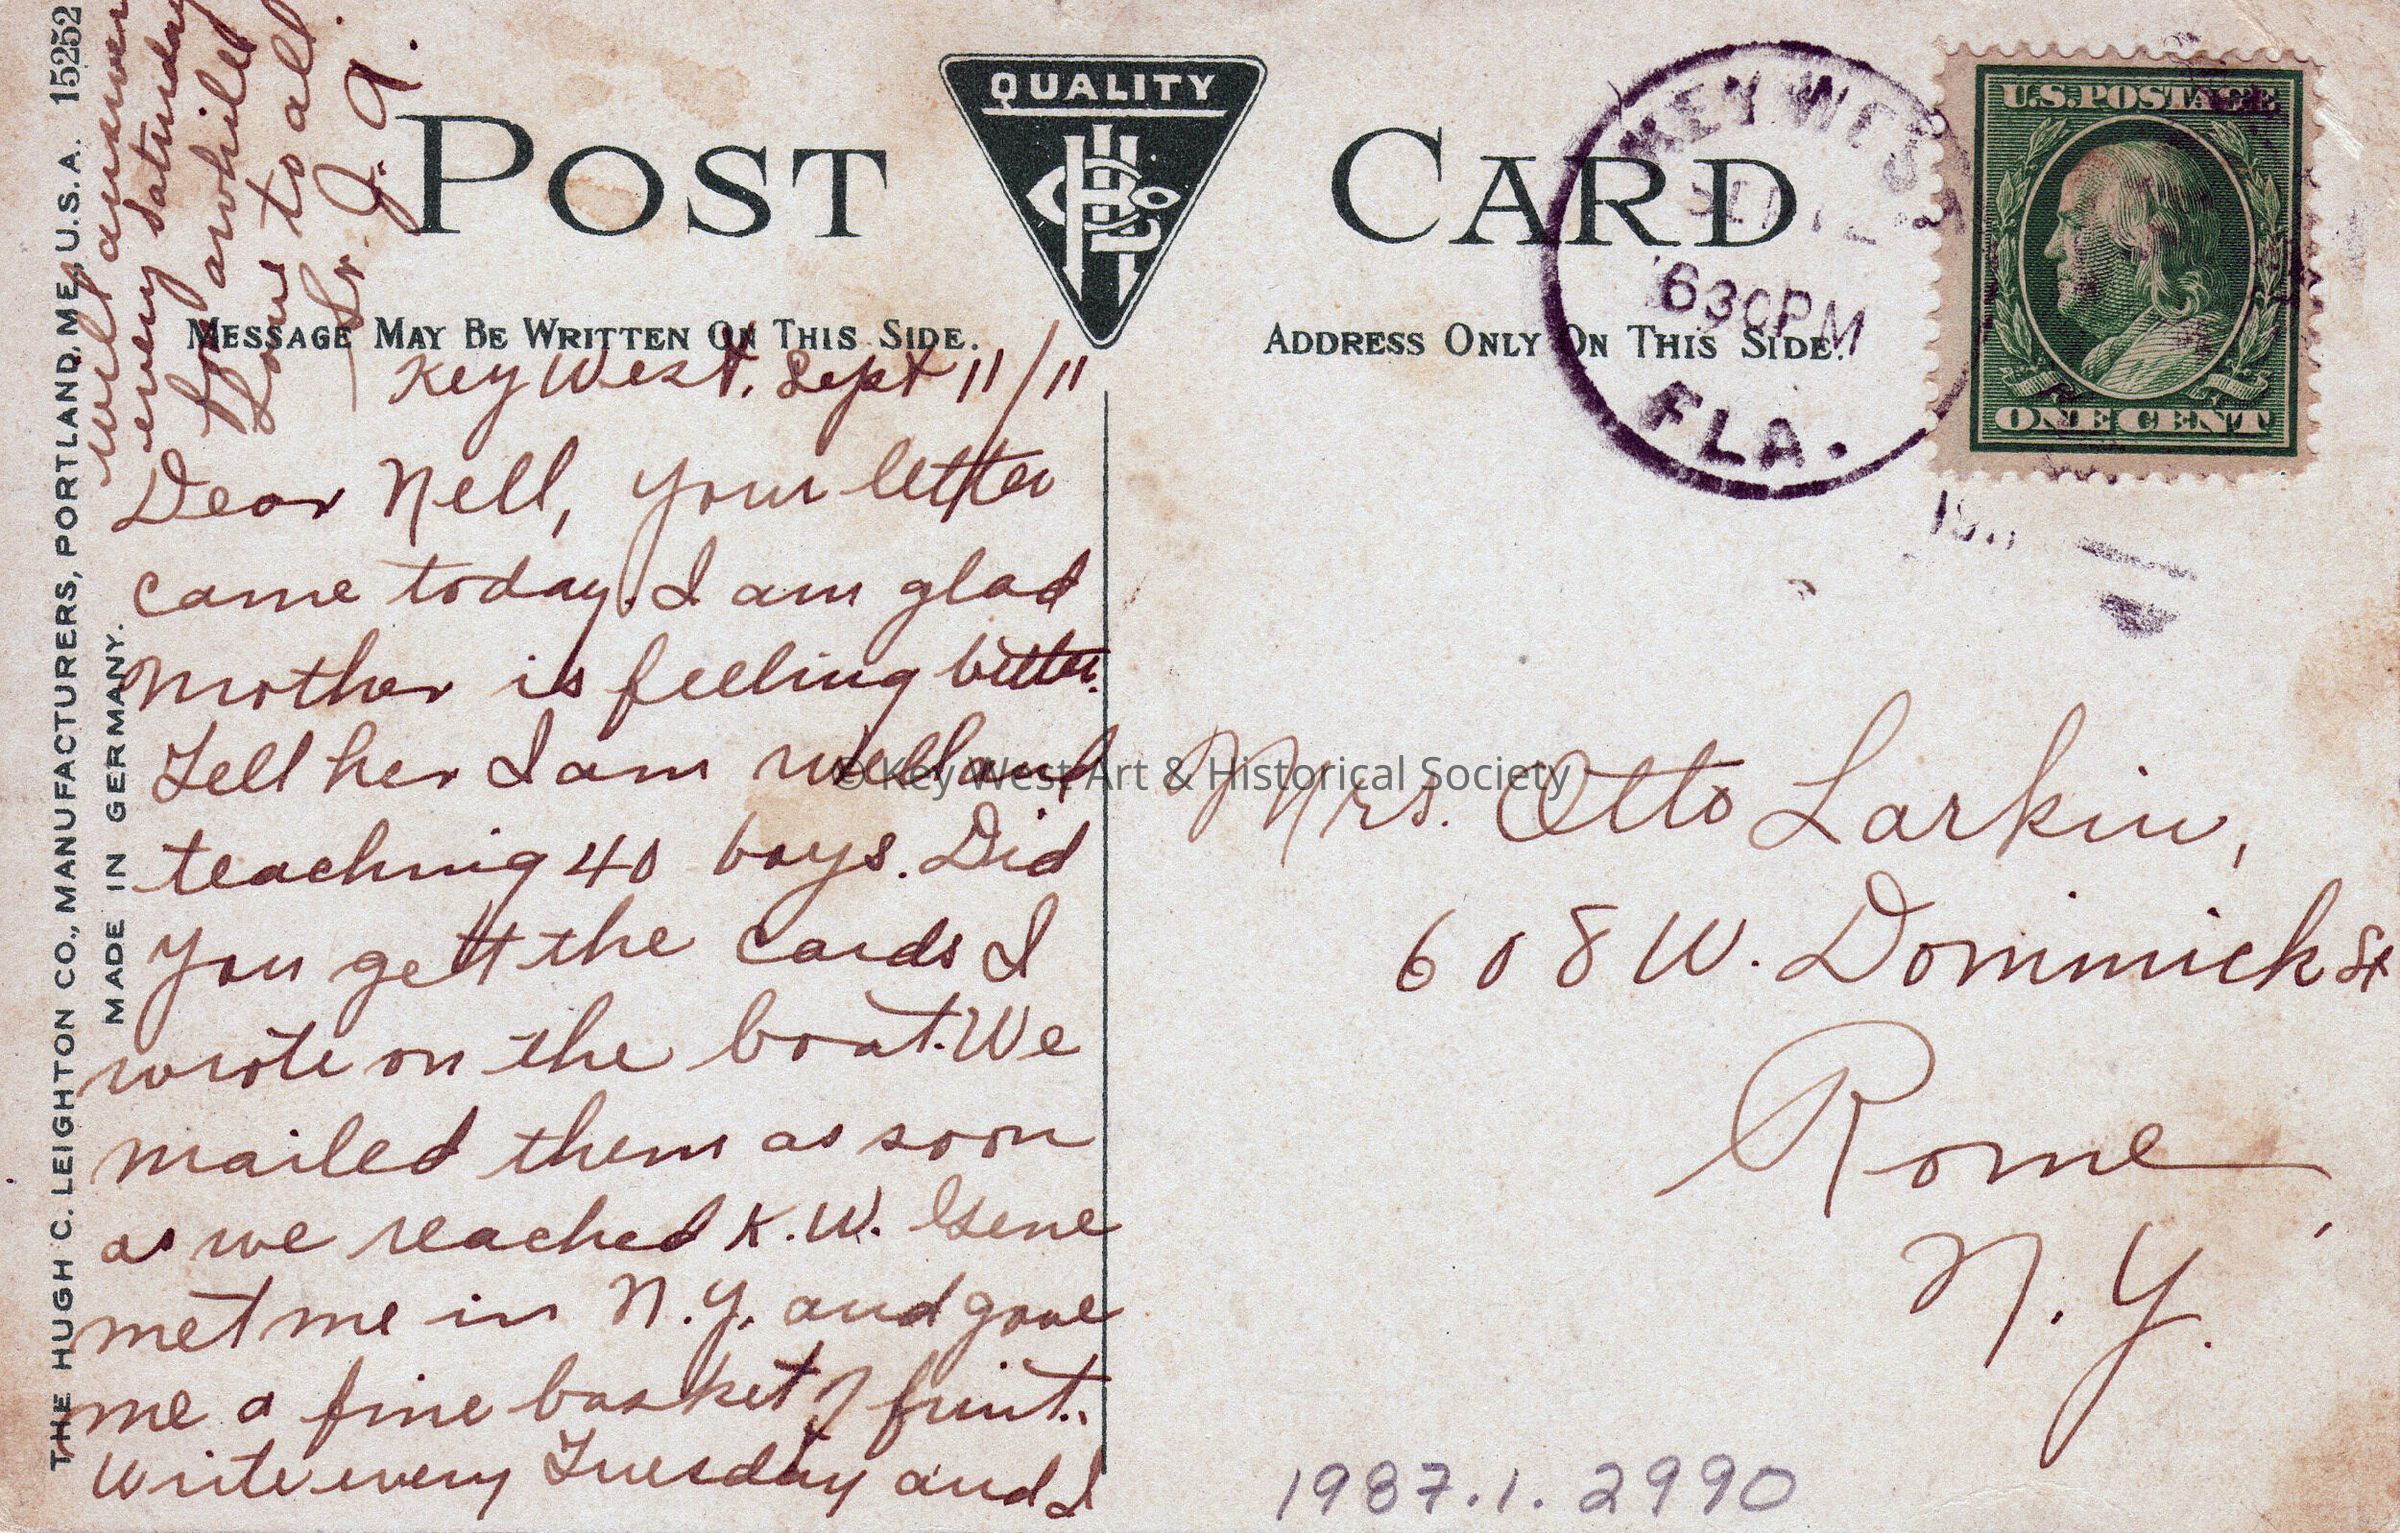 POST CARD
QUALITY
MESSAGE MAY BE WRITTEN ON THIS SIDE.
ADDRESS ONLY ON THIS SIDE.
KEY WEST
630PM
FLA.
U.S. POSTAGE
ONE CENT
Key West, Sept 11/11
Dear Nell, Your letter
came today. I am glad
mother is feeling better.
Tell her I am well and
teaching 40 boys. Did
you gett the cards I
wrote on the boat. We
mailed them as soon
as we reached K.W. Gene
met me in N.Y. and gave
me a fine basket of fruit.
Write every Tuesday and I
will answer
every Saturday
for awhile
Love to all
Sr. J. A.
Mrs. Otto Larkin,
608 W. Dominick St
Rome,
N.Y.
1987.1.2990
THE HUGH C. LEIGHTON CO., MANUFACTURERS, PORTLAND, ME., U.S.A. 15252
MADE IN GERMANY.
© Key West Art & Historical Society